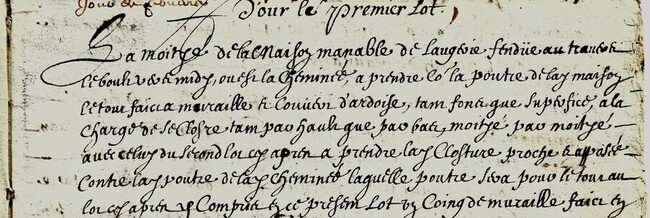 Pour le premier Lot.
La moitye de la Maison manable de Laugerie fendue au travers
le bout vers midy, ou est la cheminée, a prendre la poutre de lad maison
le tout faict a muraille & couvert d'ardoise, tam fons que superfice, a la
charge de se closre tam par hault que par bas, moityé par moityé
avec celuy du second lot cy apres a prendre lad closture proche & apasée
contre lad poutre de lad cheminée laquelle poutre sera pour le tout au
lot cy apres Compris en ce present Lot un Coing de muraille faict en